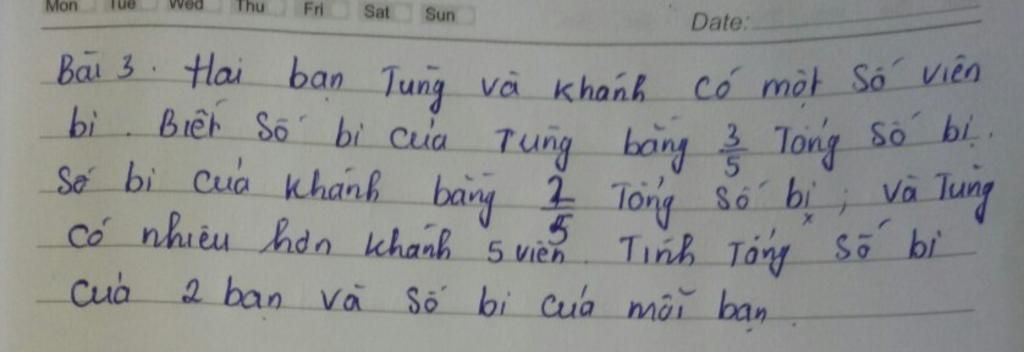 Mon Tue Wed Thu Fri Sat Sun
Date:
Bài 3. Hai bạn Tùng và Khánh có một số viên
bi. Biết số bi của Tùng bằng 3/5 Tổng số bi.
Số bi của Khánh bằng 2/5 Tổng số bi; và Tùng
có nhiều hơn Khánh 5 viên. Tính Tổng số bi
của 2 bạn và số bi của mỗi bạn.